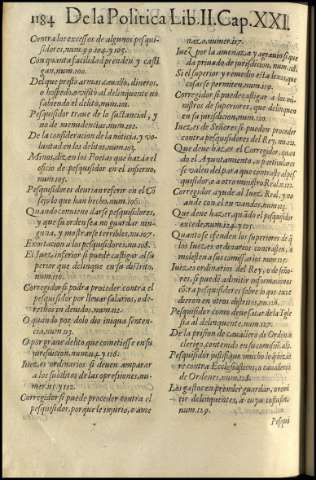 1184 De la Politica Lib. II. Cap. XXI.
Contra los excessos de algunos pesqui-
sidores, num. 99. 104. y 105.
Con quanta facilidad prenden y casti
gan, num. 100.
Del que prestò armas, cauallo, dineros,
o hospedo, o visitò al delinquente no
sabiendo el delito, num. 101.
Pesquisidor trate de lo sustancial, y
no de menudencias, num. 102.
De la consideracion de la noticia, y vo
luntad en los delitos, num. 103.
Minos, dizen los Poetas que hazia el
oficio de pesquisidor en el infierno,
num. 105.
Pesquisidores deurian referir en el Cō
sejo lo que han hecho, num. 106.
Quando conuiene darse pesquisidores,
y que su orden sea no guardar nin-
guna, y mostrarse terribles, num.
Exortacion a los pesquisidores, nu. 108.
El Iuez inferior si puede castigar al su
perior que delinque en su distrito,
num. 110.
Corregidor si podra proceder contra el
pesquisidor por lleuar salarios, o de-
rechos indeuidos, num. 111.
O quando por dolo dio iniqua senten-
cia, num. 113.
O por graue delito que cometiesse en su
jurisdicion, num. 114. y 118.
Iuezes ordinarios si deuen amparar
a los subditos de las opresiones, nu-
mer. 111. y 112.
Corregidor si puede proceder contra el
pesquisidor, porque le injurio, o ame
nazò, numer. 117.
Iuez por la amenaza y agrauio queda
priuado de jurisdicion, num.
Si el superior y remedio esta lexos, que
cosas se permiten, num. 119.
Corregidor si puede castigar a los mi-
nistros de superiores, que delinquen
en su jurisdicion, num. 120.
Iuezes de Señores si pueden proceder
contra pesquisidores del Rey, num.
Que deue hazer el Corregidor, quan
do el Ayuntamiento, o particulares
se valen del para que contraste al pes
quisidor, o a otro ministro Real, 122.
Corregidor ayude al Iuez Real, y no
ande con el en vandos, num.
Que deue hazer, quādo el pesquisidor
excede, num. 124. y 125.
Quanto se ofenden los superiores de q̃
los Iuezes ordinarios contrasten, o
molesten a sus comissarios, num.
Iuezes ordinarios del Rey, o de seño-
res, si puedē admitir informaciones
cōtra pesquisidores sobre lo que exce
dieron en otros distritos, num. 126.
Pesquisidor como deue sacar de la Igle
sia al delinquente, num. 127.
De la prision de cauallero de Ordē, o
clerigo, contenido en su comissiō,
Pesquisidor justifique mucho lo q̃ hizie
re contra Eclesiasticos, o caualleros
de Ordenes, num. 128.
Los gastos en prender, guardar, o remi
tir delinquentes, a cuya costa son,
num. 129.
Pesqui